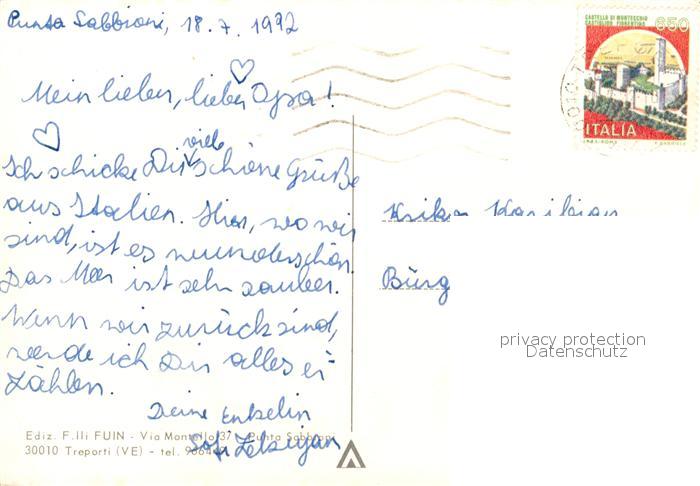 Punta Sabbioni, 18.7.1992
Mein lieber, lieber Opa!
Ich schicke Dir viele schöne Grüße
aus Italien. Hier, wo wir
sind, ist es wunderschön.
Das Meer ist sehr sauber.
Wenn wir zurück sind,
werde ich Dir alles er-
zählen.
Deine Enkelin
Ediz. F.lli FUIN - Via Montello 37 - Punta Sabbioni
30010 Treporti (VE) - tel.
CASTELLO DI MONTECCHIO
CASTIGLION FIORENTINO
650
ITALIA
Bürg
privacy protection
Datenschutz